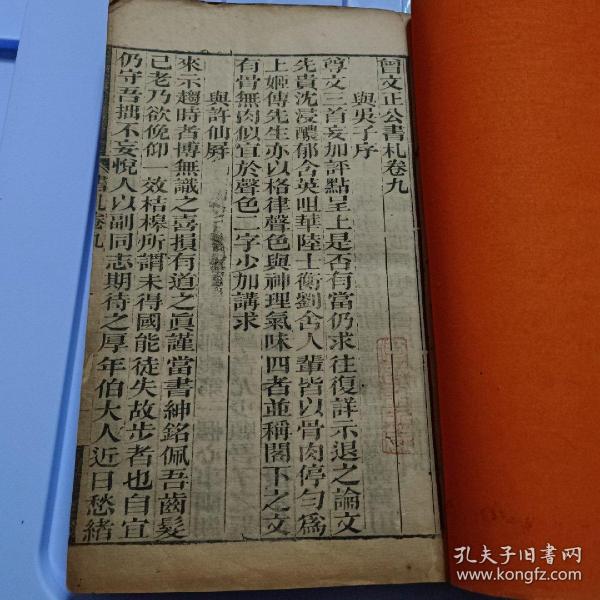 曾文正公書札卷九
與吳子序
尊文三首妄加評點呈上是否有當仍求往復詳示退之論文
先貴沈浸醲郁含英咀華陸士衡劉舍人輩皆以骨肉停勻爲
上姬傳先生亦以格律聲色與神理氣味四者並稱閣下之文
有骨無肉似宜於聲色二字少加講求
與許仙屏
來示趨時者博無識之喜損有道之眞謹當書紳銘佩吾齒髮
已老乃欲俛仰一效桔槔所謂未得國能徒失故步者也自宜
仍守吾拙不妄悅人以副同志期待之厚年伯大人近日愁緒
書札卷九
孔夫子旧书网
www.kongfz.com